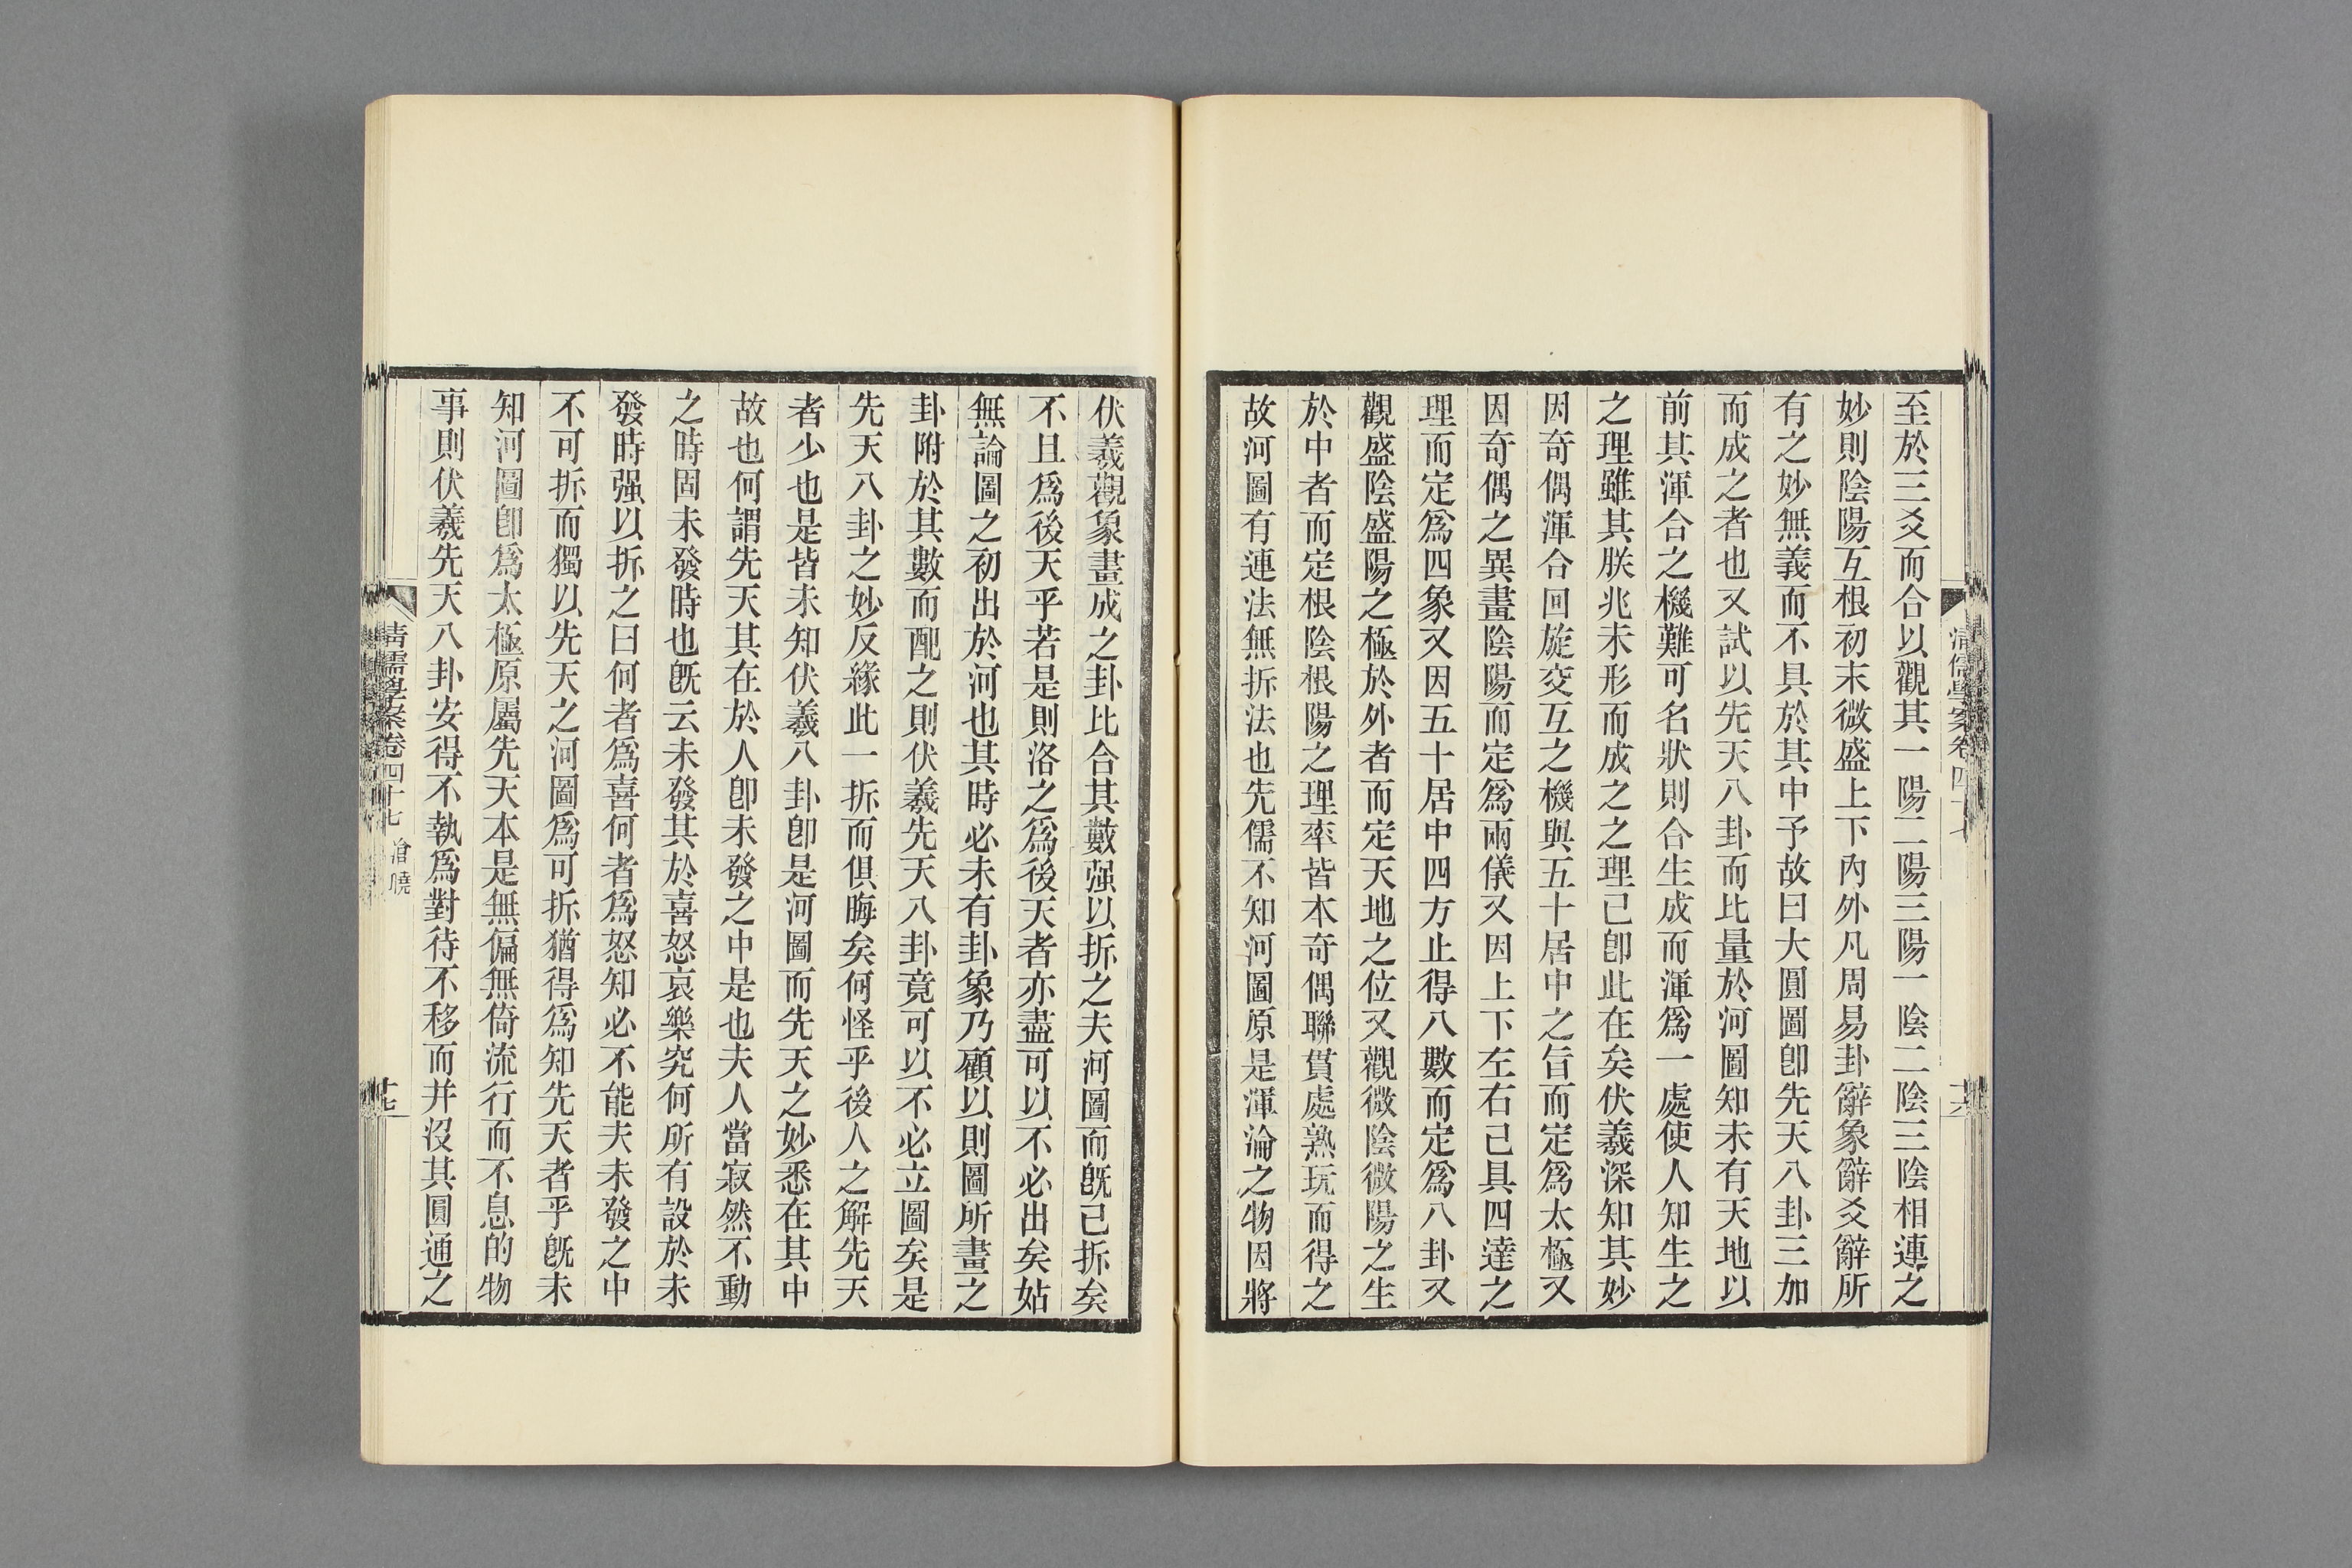 至於三爻而合以觀其一陽二陽三陽一陰二陰三陰相連之
妙則陰陽互根初末微盛上下內外凡周易卦辭象辭爻辭所
有之妙無義而不具於其中予故曰大圓圖卽先天八卦三加
而成之者也又試以先天八卦而比量於河圖知未有天地以
前其渾合之機難可名狀則合生成而渾爲一處使人知生之
之理雖其朕兆未形而成之之理已卽此在矣伏羲深知其妙
因奇偶渾合回旋交互之機與五十居中之旨而定爲太極又
因奇偶之異畫陰陽而定爲兩儀又因上下左右已具四達之
理而定爲四象又因五十居中四方止得八數而定爲八卦又
觀盛陰盛陽之極於外者而定天地之位又觀微陰微陽之生
於中者而定根陰根陽之理率皆本奇偶聯貫處熟玩而得之
故河圖有連法無拆法也先儒不知河圖原是渾淪之物因將
清儒學案卷四十七
伏羲觀象畫成之卦比合其數强以拆之夫河圖而旣已拆矣
不且爲後天乎若是則洛之爲後天者亦盡可以不必出矣姑
無論圖之初出於河也其時必未有卦象乃顧以則圖所畫之
卦附於其數而配之則伏羲先天八卦竟可以不必立圖矣是
先天八卦之妙反緣此一拆而俱晦矣何怪乎後人之解先天
者少也是皆未知伏羲八卦卽是河圖而先天之妙悉在其中
故也何謂先天其在於人卽未發之中是也夫人當寂然不動
之時固未發時也旣云未發其於喜怒哀樂究何所有設於未
發時强以拆之曰何者爲喜何者爲怒知必不能夫未發之中
不可拆而獨以先天之河圖爲可拆猶得爲知先天者乎旣未
知河圖卽爲太極原屬先天本是無偏無倚流行而不息的物
事則伏羲先天八卦安得不執爲對待不移而并沒其圓通之
清儒學案卷四十七 滄曉